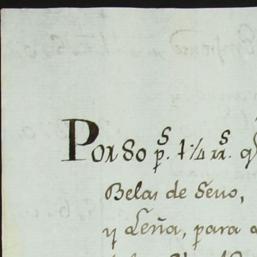 Por 80 p.s 1 1/4 rr.s q
Belas de Sevo,
y Leña, para